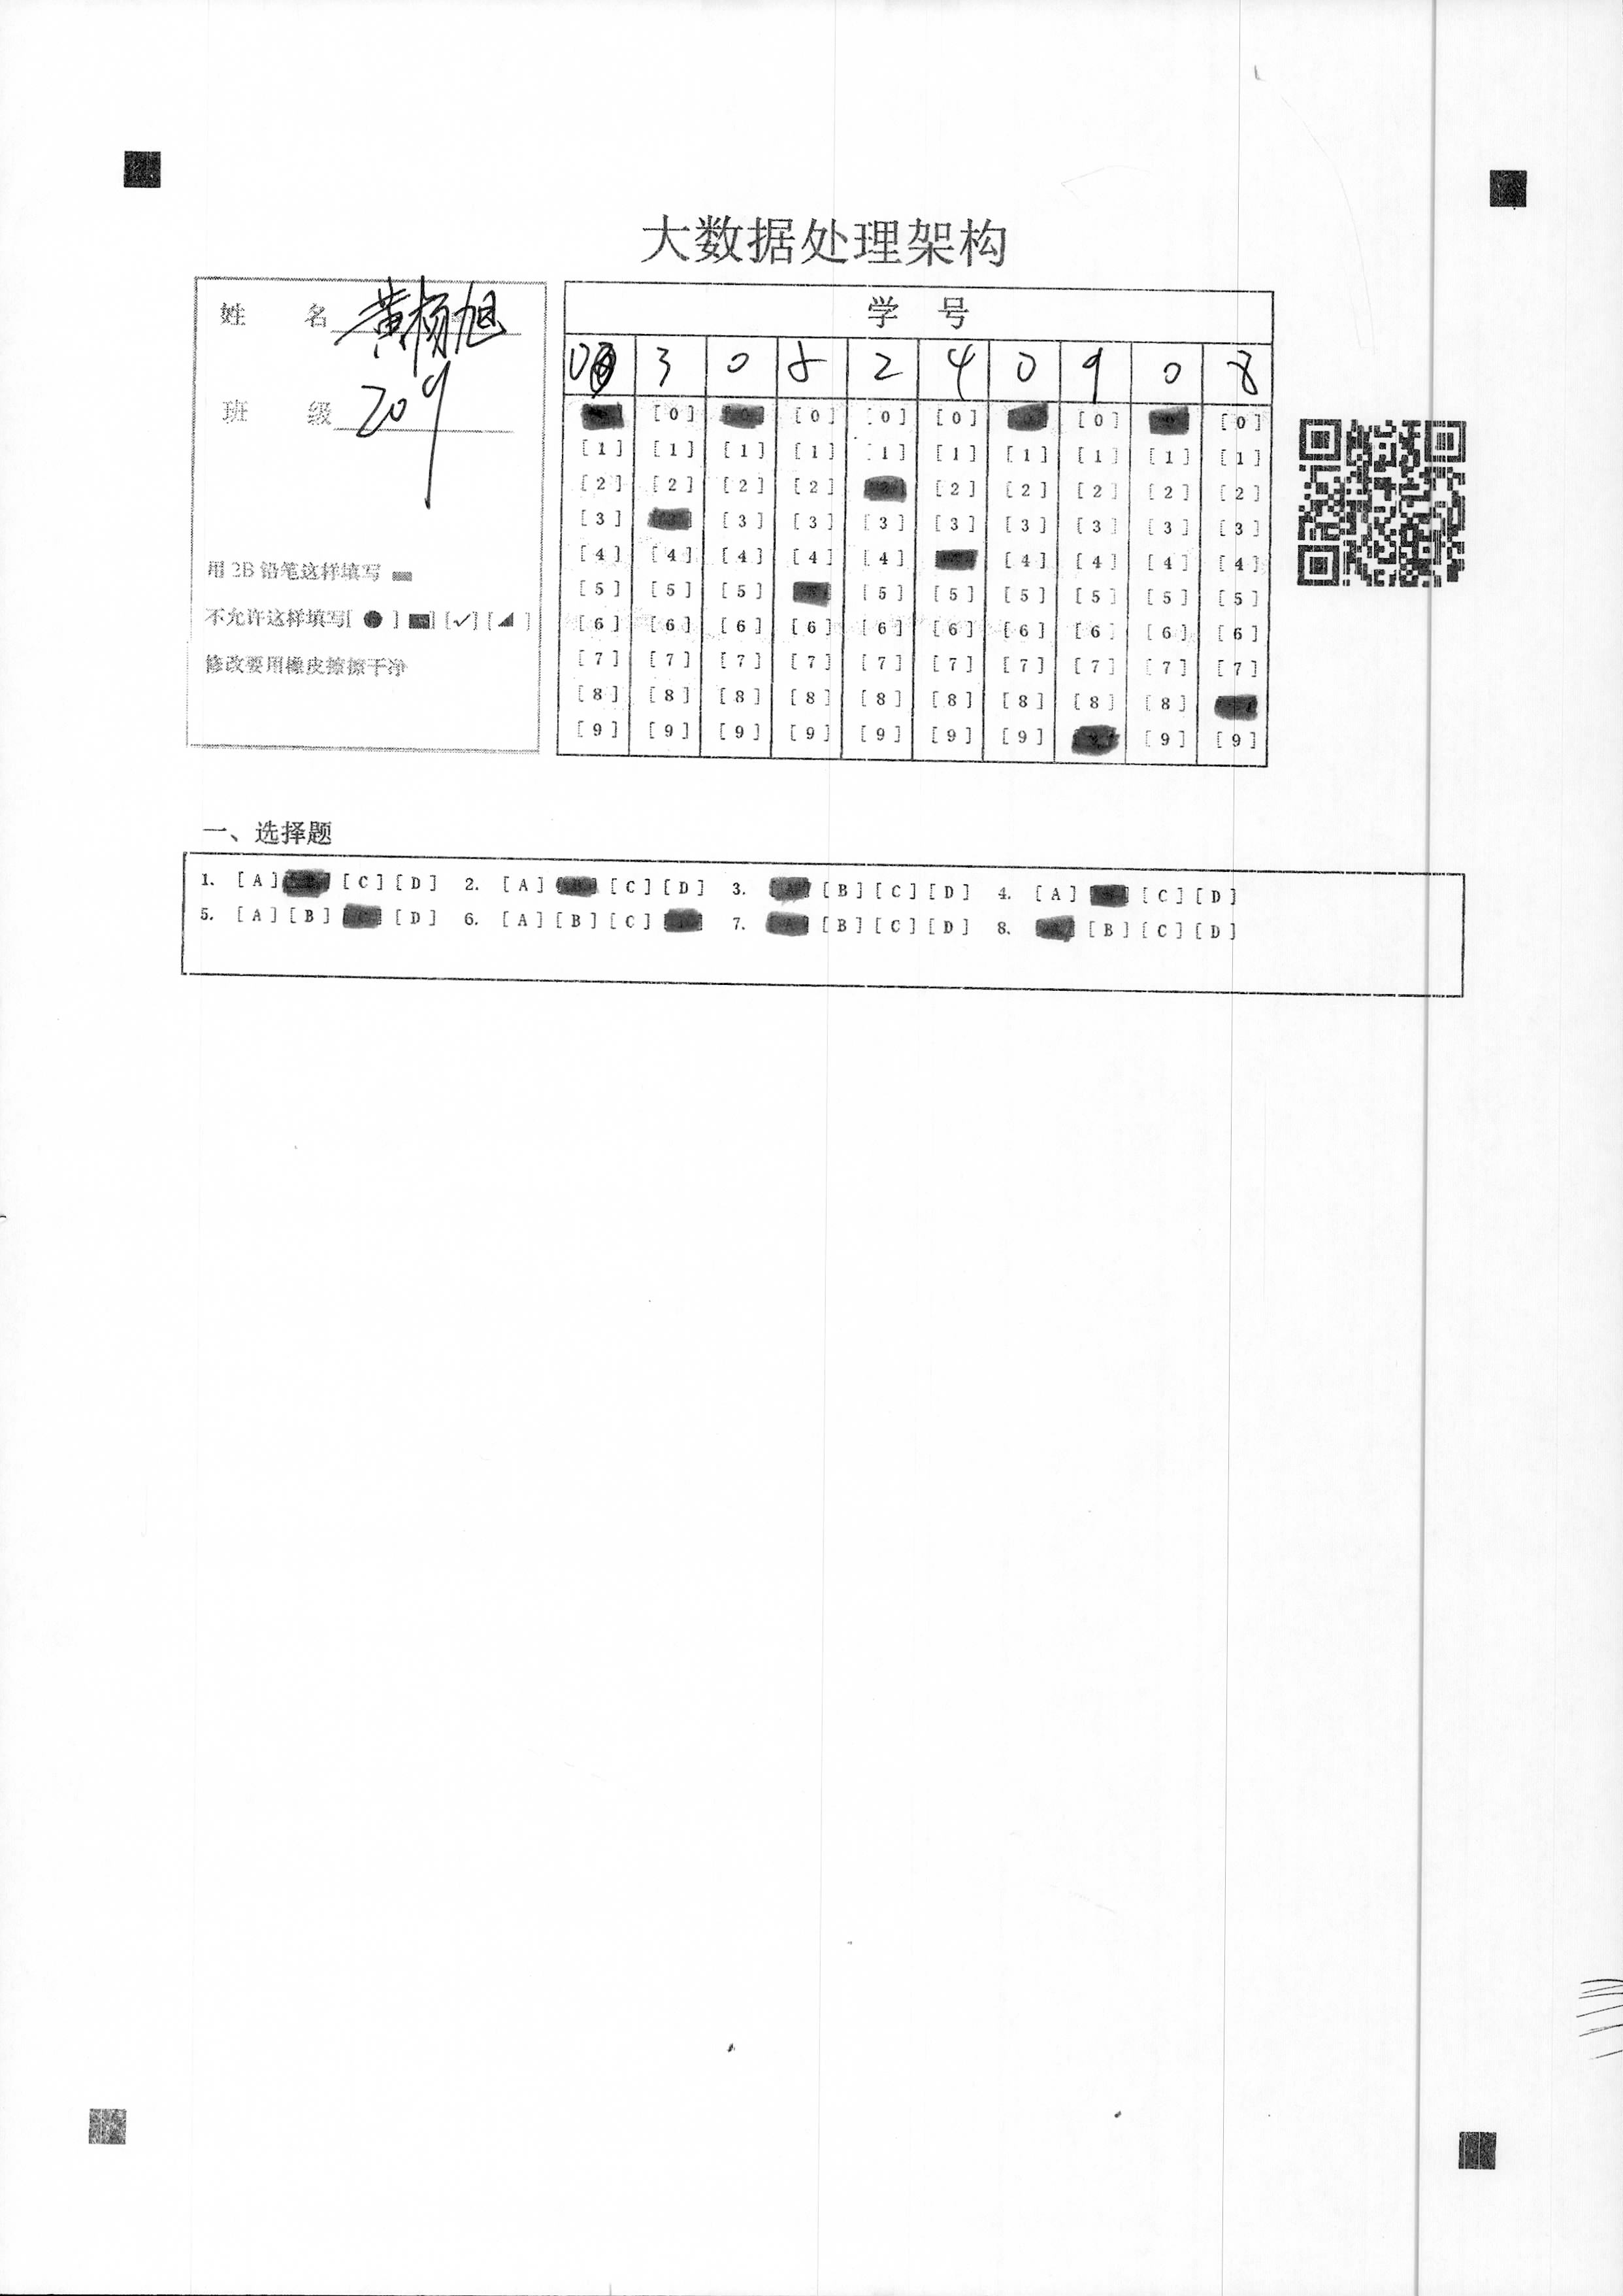 大数据处理架构
姓 名 黄杨旭
班 级 209
用 2B 铅笔这样填写
不允许这样填写[ ● ] [✓] [◢ ]
修改要用橡皮擦擦干净
学 号
0 3 0 5 2 4 0 9 0 8
[0] [0] [0] [0] [0] [0]
[1] [1] [1] [1] [1] [1] [1] [1] [1] [1]
[2] [2] [2] [2] [2] [2] [2] [2] [2]
[3] [3] [3] [3] [3] [3] [3] [3] [3]
[4] [4] [4] [4] [4] [4] [4] [4] [4]
[5] [5] [5] [5] [5] [5] [5] [5] [5]
[6] [6] [6] [6] [6] [6] [6] [6] [6] [6]
[7] [7] [7] [7] [7] [7] [7] [7] [7] [7]
[8] [8] [8] [8] [8] [8] [8] [8] [8]
[9] [9] [9] [9] [9] [9] [9] [9] [9]
一、选择题
1. [A] [C] [D] 2. [A] [C] [D] 3. [B] [C] [D] 4. [A] [C] [D]
5. [A] [B] [D] 6. [A] [B] [C] 7. [B] [C] [D] 8. [B] [C] [D]